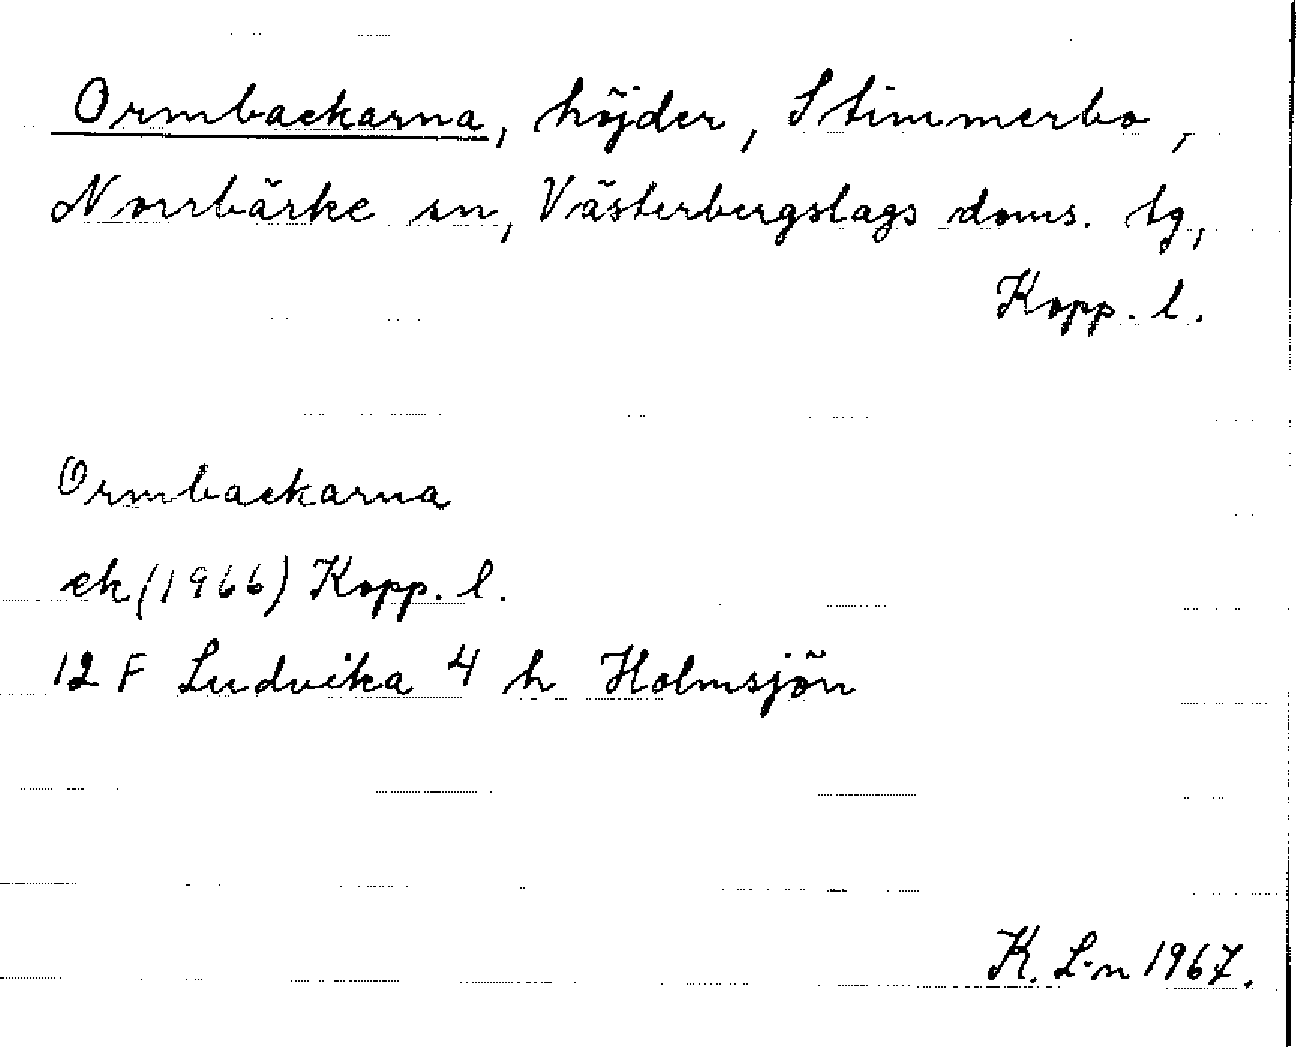 Ormbackarna, höjder, Stimmerbo,
Norrbärke sn, Västerbergslags doms. tg,
Kopp. l.
Ormbackarna
ek (1966) Kopp. l.
12 F Ludvika 4 h Holmsjön
K. L-n 1967.